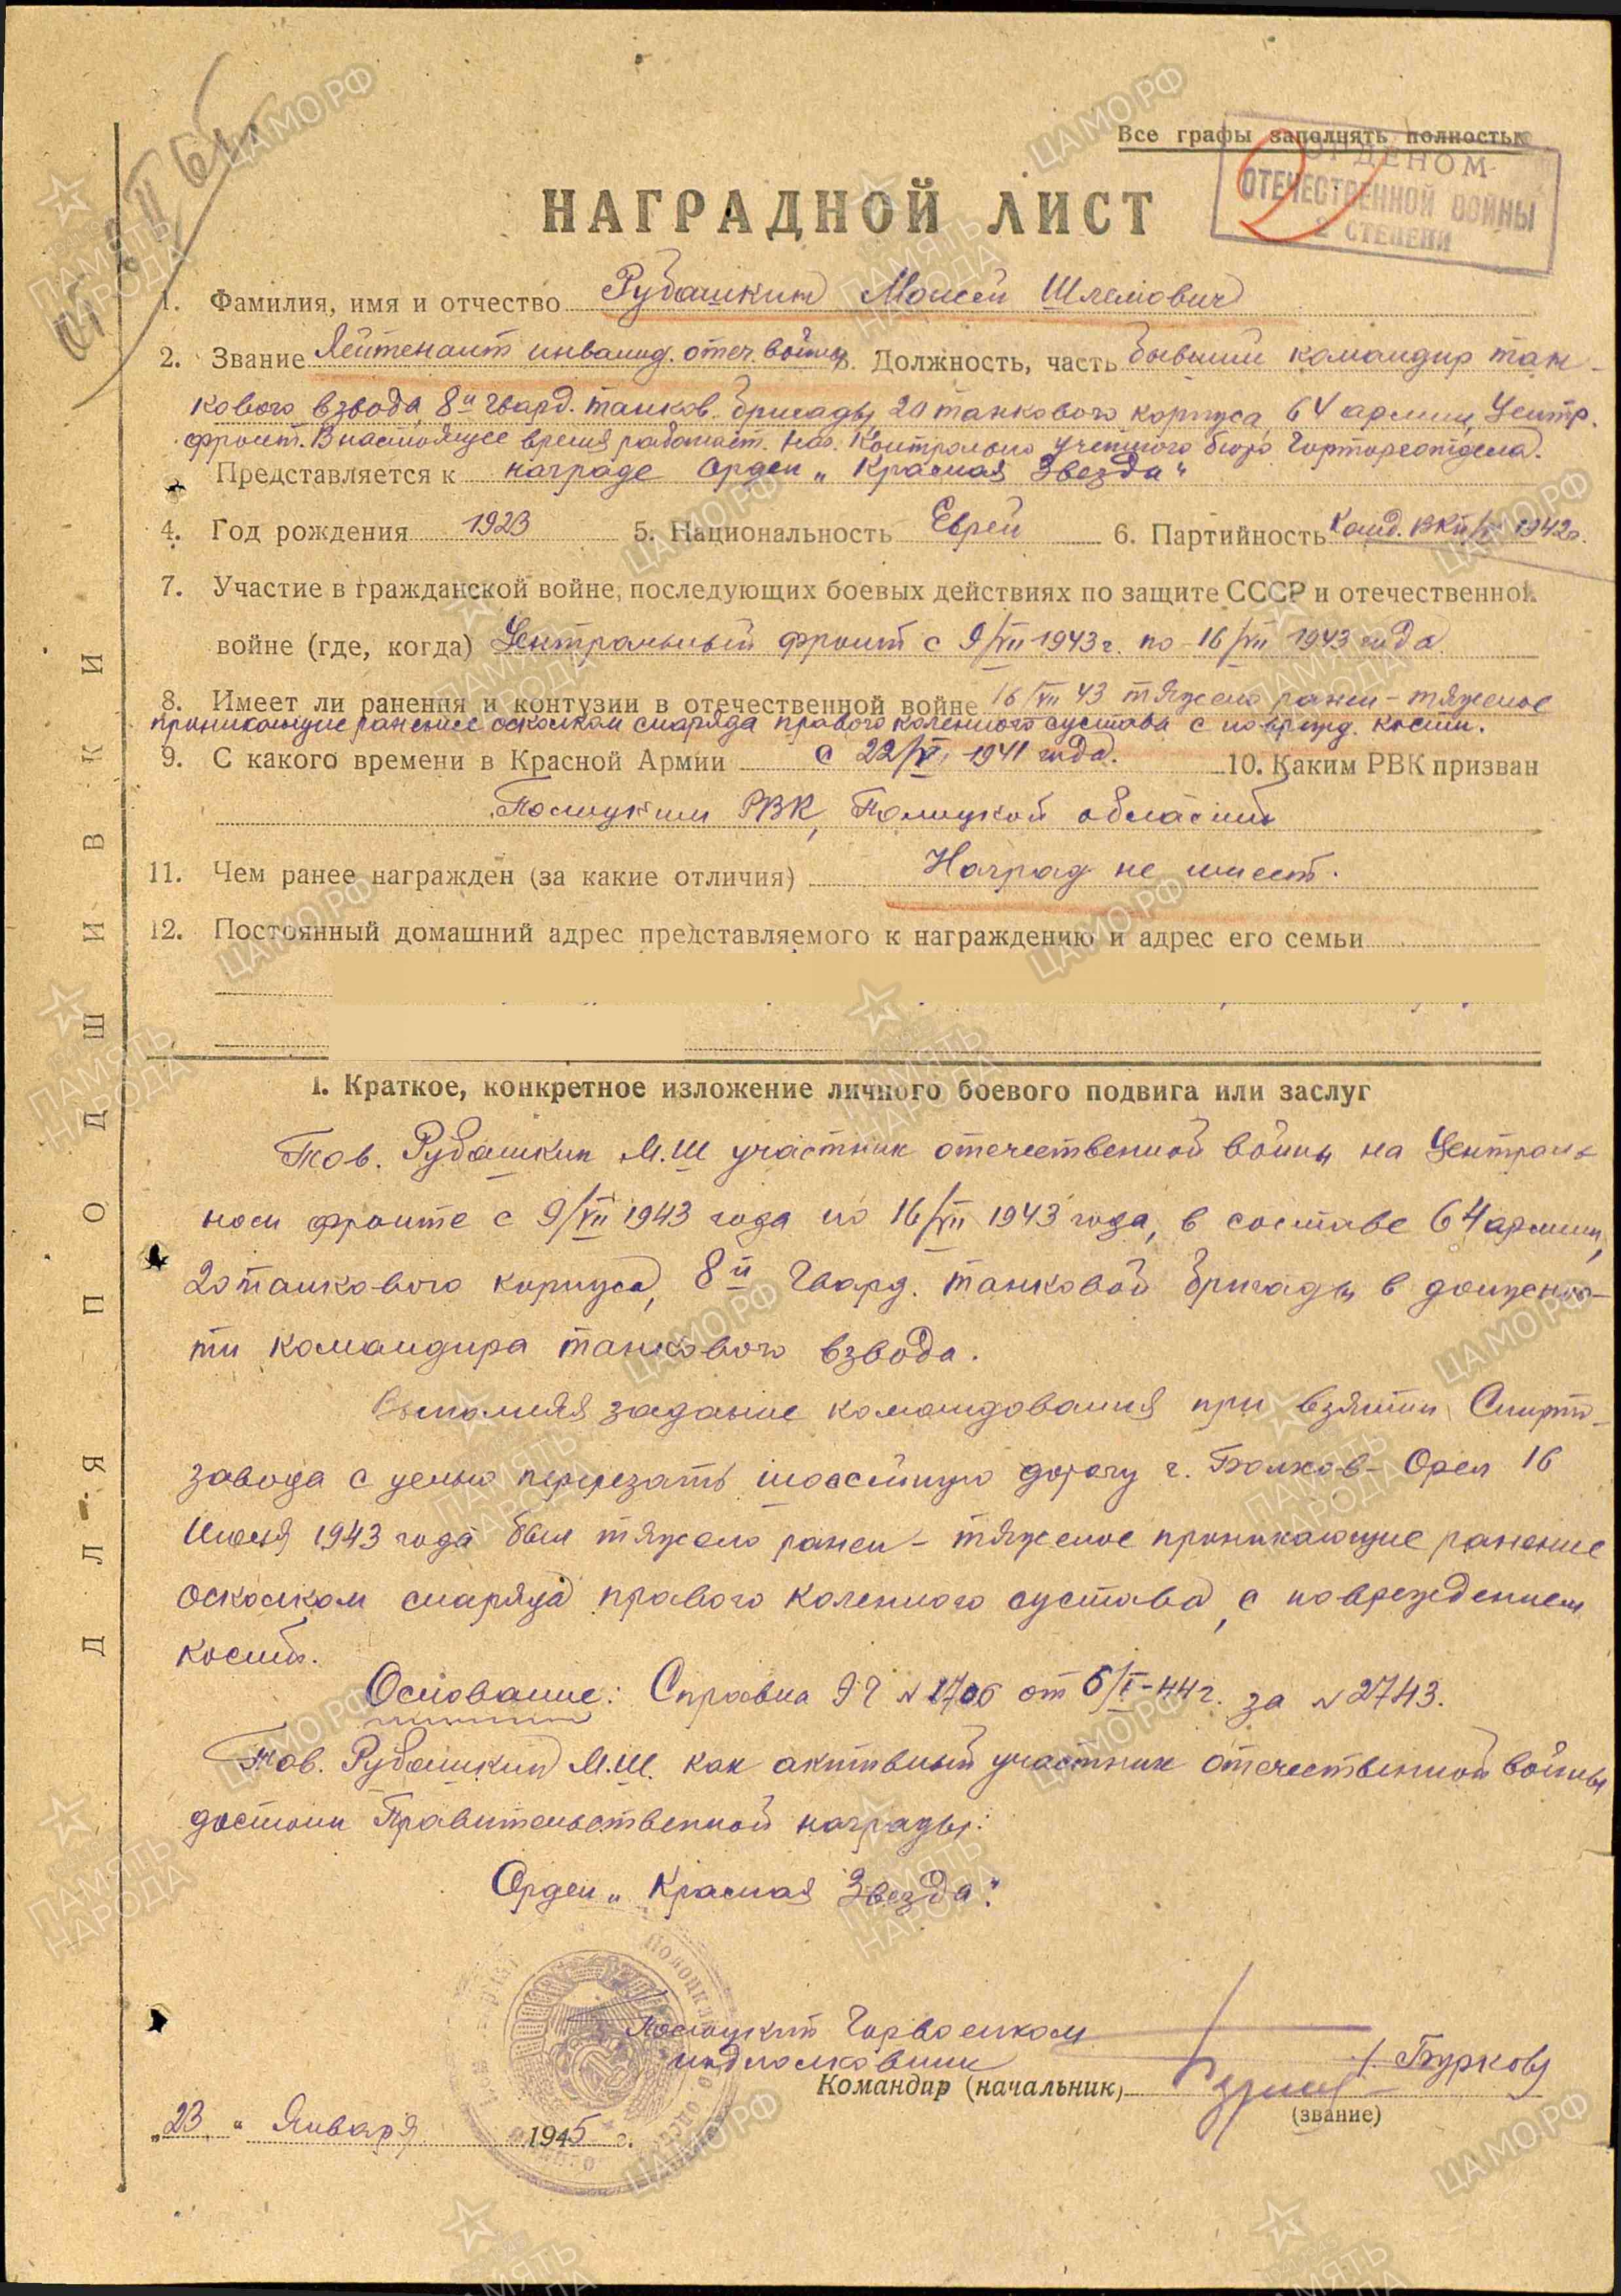 Все графы заполнять полностью
ОРДЕНОМ
ОТЕЧЕСТВЕННОЙ ВОЙНЫ
2 СТЕПЕНИ
НАГРАДНОЙ ЛИСТ
1. Фамилия, имя и отчество Рубашкин Моисей Шлемович
2. Звание Лейтенант инвалид. отеч. войны 3. Должность, часть бывший командир тан-
кового взвода, 8й гвард. танков. бригады, 20 танкового корпуса, 64 армии, Центр.
фронт. В настоящее время работает. нач. Контрольно учетного бюро Горторготдела.
Представляется к награде Орден „Красная Звезда“
4. Год рождения 1923 5. Национальность Еврей 6. Партийность Канд. ВКП/б 1942г.
7. Участие в гражданской войне, последующих боевых действиях по защите СССР и отечественной
войне (где, когда) Центральный фронт с 9/VII 1943г. по 16/VII 1943 года
8. Имеет ли ранения и контузии в отечественной войне 16/VII 43 тяжело ранен - тяжелое
проникающие ранение осколком снаряда правого коленного сустава с поврежд. кости.
9. С какого времени в Красной Армии с 22/VI, 1941 года. 10. Каким РВК призван
Полоцким РВК, Полоцкой области
11. Чем ранее награжден (за какие отличия) Наград не имеет.
12. Постоянный домашний адрес представляемого к награждению и адрес его семьи
1. Краткое, конкретное изложение личного боевого подвига или заслуг
Тов. Рубашкин М.Ш участник отечественной войны на Централь
ном фронте с 9/VII 1943 года по 16/VII 1943 года, в составе 64 армии,
20 танкового корпуса, 8й Гвард. танковой бригады в должнос-
ти командира танкового взвода.
Выполняя задание командования при взятии Спирто-
завода с целью перерезать шоссейную дорогу г. Болхов - Орел 16
Июля 1943 года был тяжело ранен - тяжелое проникающие ранение
осколком снаряда правого коленного сустава, с повреждением
кости.
Основание: Справка ЭГ N 2706 от 6/I-44г. за N 2743.
Тов. Рубашкин М.Ш. как активный участник отечественной войны
достоин Правительственной награды:
Орден „Красная Звезда“.
Полоцкий Горвоенком
подполковник
Командир (начальник) /. Бурков/
(звание)
„23“ Января 1945 г.
ДЛЯ ПОДШИВКИ
ПАМЯТЬ НАРОДА
ЦАМО.РФ